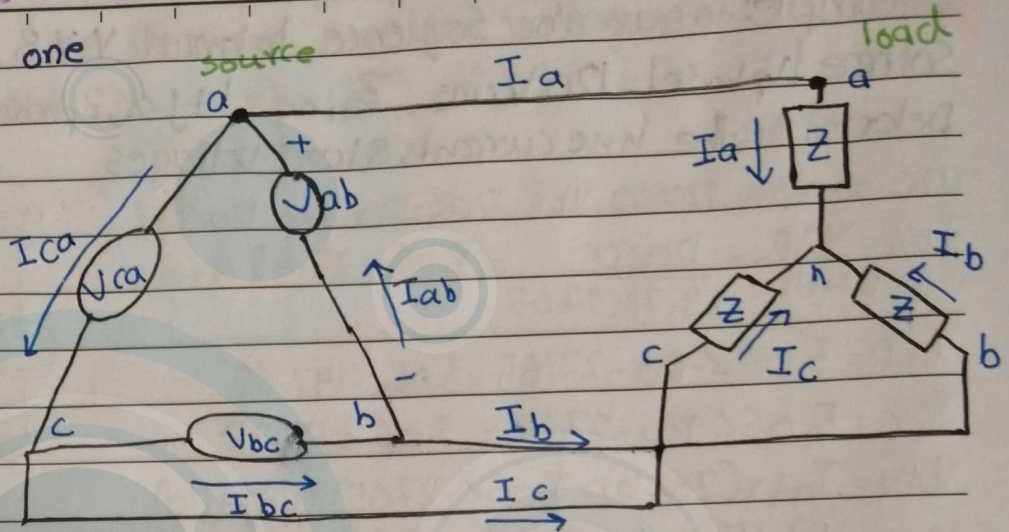 one
source
load
a
Ia
a
+
Vab
Ia
Z
Ica
Vca
Iab
-
n
Ib
Z
Z
c
Ic
b
c
Vbc
b
Ib
Ibc
Ic